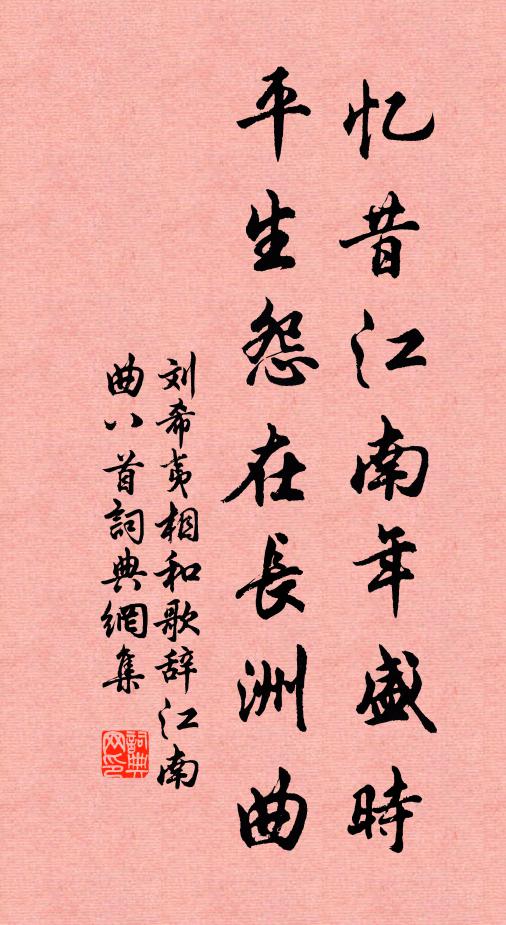 忆昔江南年盛時
平生怨在長洲曲
刘希夷相和歌辞江南
曲八首詞典網集
詞典网印